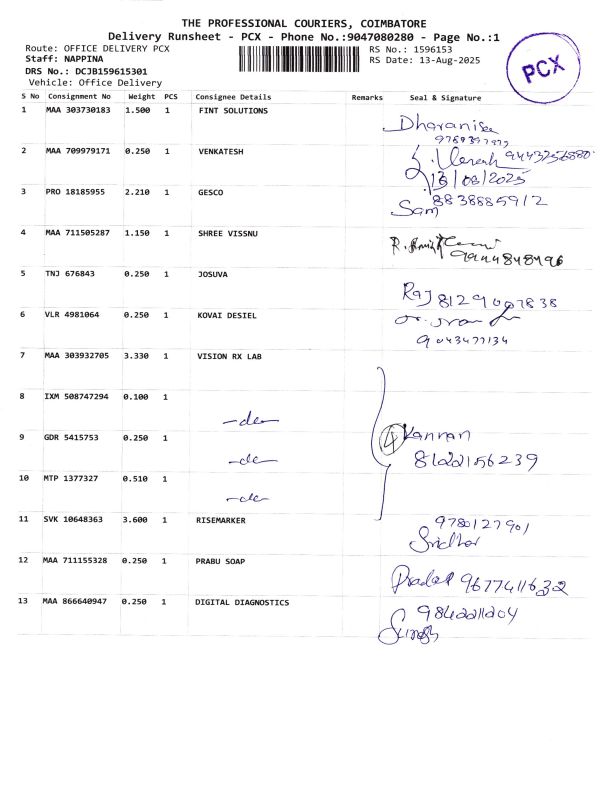 THE PROFESSIONAL COURIERS, COIMBATORE
Delivery Runsheet - PCX - Phone No.:9047080280 - Page No.:1
Route: OFFICE DELIVERY PCX
Staff: NAPPINA
DRS No.: DCJB159615301
Vehicle: Office Delivery
RS No.: 1596153
RS Date: 13-Aug-2025
PCX
S No Consignment No Weight PCS Consignee Details Remarks Seal & Signature
1 MAA 303730183 1.500 1 FINT SOLUTIONS
2 MAA 709979171 0.250 1 VENKATESH
13/08/2025
3 PRO 18185955 2.210 1 GESCO Sam 8838885912
4 MAA 711505287 1.150 1 SHREE VISSNU
9944848496
5 TNJ 676843 0.250 1 JOSUVA
Raj
6 VLR 4981064 0.250 1 KOVAI DESIEL
9043477134
7 MAA 303932705 3.330 1 VISION RX LAB
8 IXM 508747294 0.100 1 -do-
9 GDR 5415753 0.250 1 -do- 4 Kannan
8122156239
10 MTP 1377327 0.510 1 -do-
11 SVK 10648363 3.600 1 RISEMARKER 9780127901
Sridhar
12 MAA 711155328 0.250 1 PRABU SOAP
9677411632
13 MAA 866640947 0.250 1 DIGITAL DIAGNOSTICS 9842211204